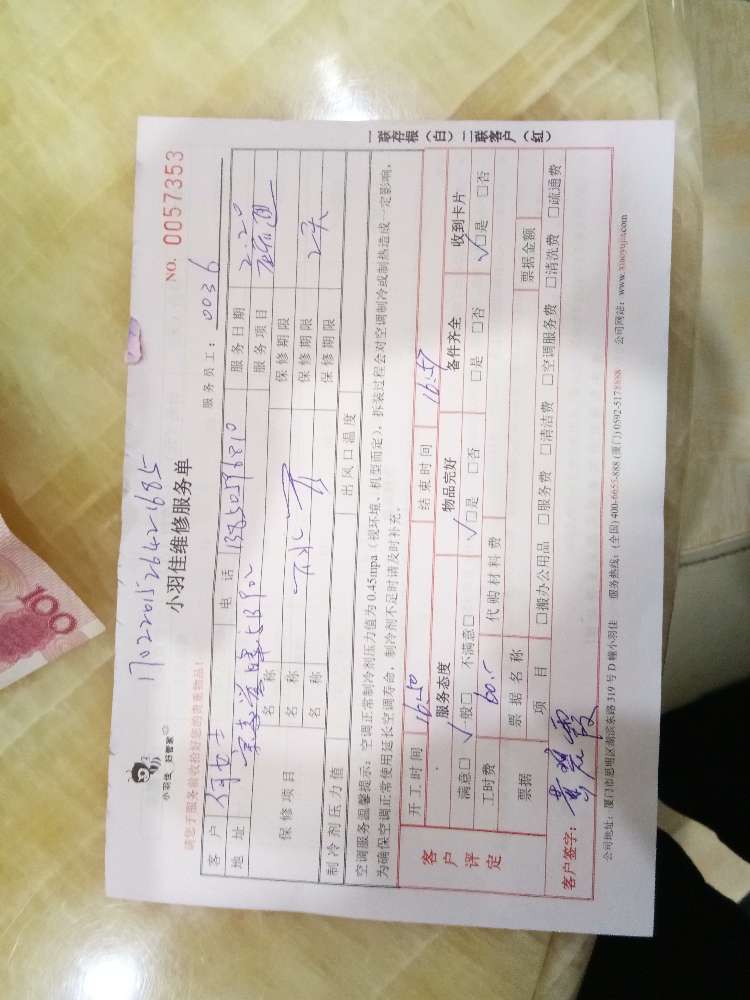 1702201526421685
小羽佳 好管家
小羽佳维修服务单
NO. 0057353
请您于服务前收拾好您的贵重物品!
服务员工: 0036
客户 何女士 电话 13850596810 服务日期 2.20
地址 服务项目
保修项目 名称 保修期限
名称 保修期限
名称 保修期限 2天
制冷剂压力值 出风口温度
空调服务温馨提示:空调正常制冷剂压力值为0.45mpa(视环境、机型而定),拆装过程会对空调制冷或制热造成一定影响,
为确保空调正常使用延长空调寿命,制冷剂不足时请及时补充。
客户评定 开工时间 16:50 结束时间 16:57
服务态度 物品完好 备件齐全 收到卡片
满意□ 一般□ 不满意□ □是 □否 □是 □否 □是 □否
工时费 60.- 代购材料费
票据 票据名称 票据金额
项目 □搬办公用品 □服务费 □清洁费 □空调服务费 □清洗费 □疏通费
客户签字: 黄碧霞
公司地址:厦门市思明区湖滨东路319号D幢小羽佳 服务热线:(全国)400-6655-888 (厦门)0592-5178888 公司网站:www.xiaoyujia.com
一联存根(白)二联客户(红)
100